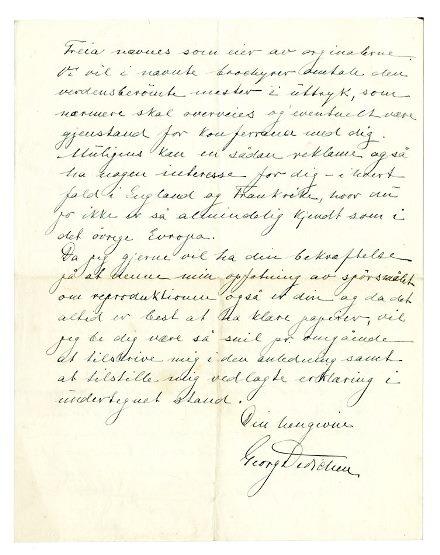 Freia nævnes som eier av orginalerne.
Vi vil i nævnte brochyrer omtale den
verdensberömte mester i uttryk, som
nærmere skal overveies og eventuelt være
gjenstand for konferranse med dig.
Muligens kan en sådan reklame også
ha nogen interesse for dig – i hvert
fald i England og Frankrike, hvor du
jo ikke er så almindelig kjendt som i
det øvrige Evropa.
Da jeg gjerne vil ha din bekræftelse
på at denne min opfatning av spörsmålet
om reproduktionen også er din og da det
altid er best at ha klare papirer, vil
jeg be dig være så snil pr. omgående
at tilskrive mig i den anledning samt
at tilstille mig vedlagte erklæring i
undertegnet stand.
Din hengivne
Georg